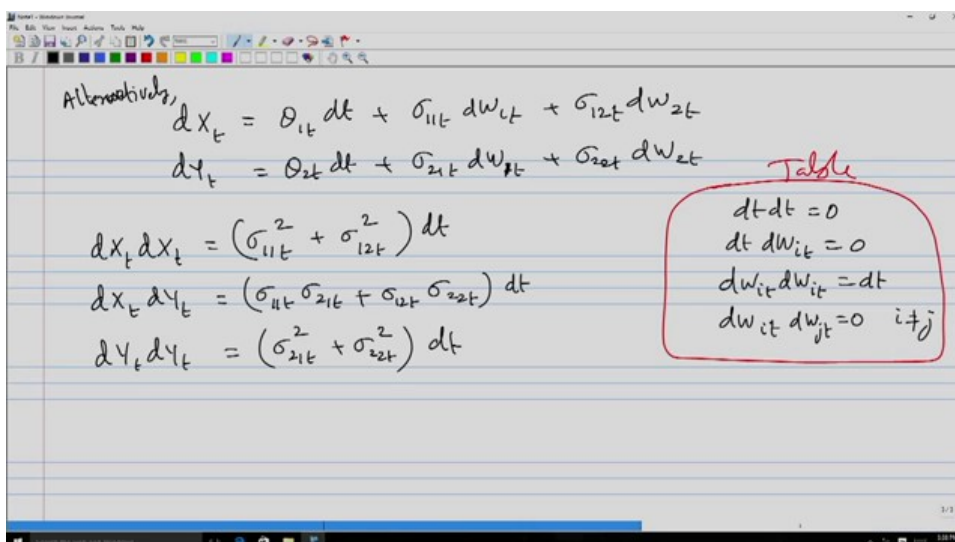 File Edit View Insert Actions Tools Help
B I
Alternatively,
dX_t = θ_{1t} dt + σ_{11t} dW_{1t} + σ_{12t} dW_{2t}
dY_t = θ_{2t} dt + σ_{21t} dW_{1t} + σ_{22t} dW_{2t}
dX_t dX_t = (σ²_{11t} + σ²_{12t}) dt
dX_t dY_t = (σ_{11t} σ_{21t} + σ_{12t} σ_{22t}) dt
dY_t dY_t = (σ²_{21t} + σ²_{22t}) dt
Table
dt dt = 0
dt dW_{it} = 0
dW_{it} dW_{it} = dt
dW_{it} dW_{jt} = 0 i ≠ j